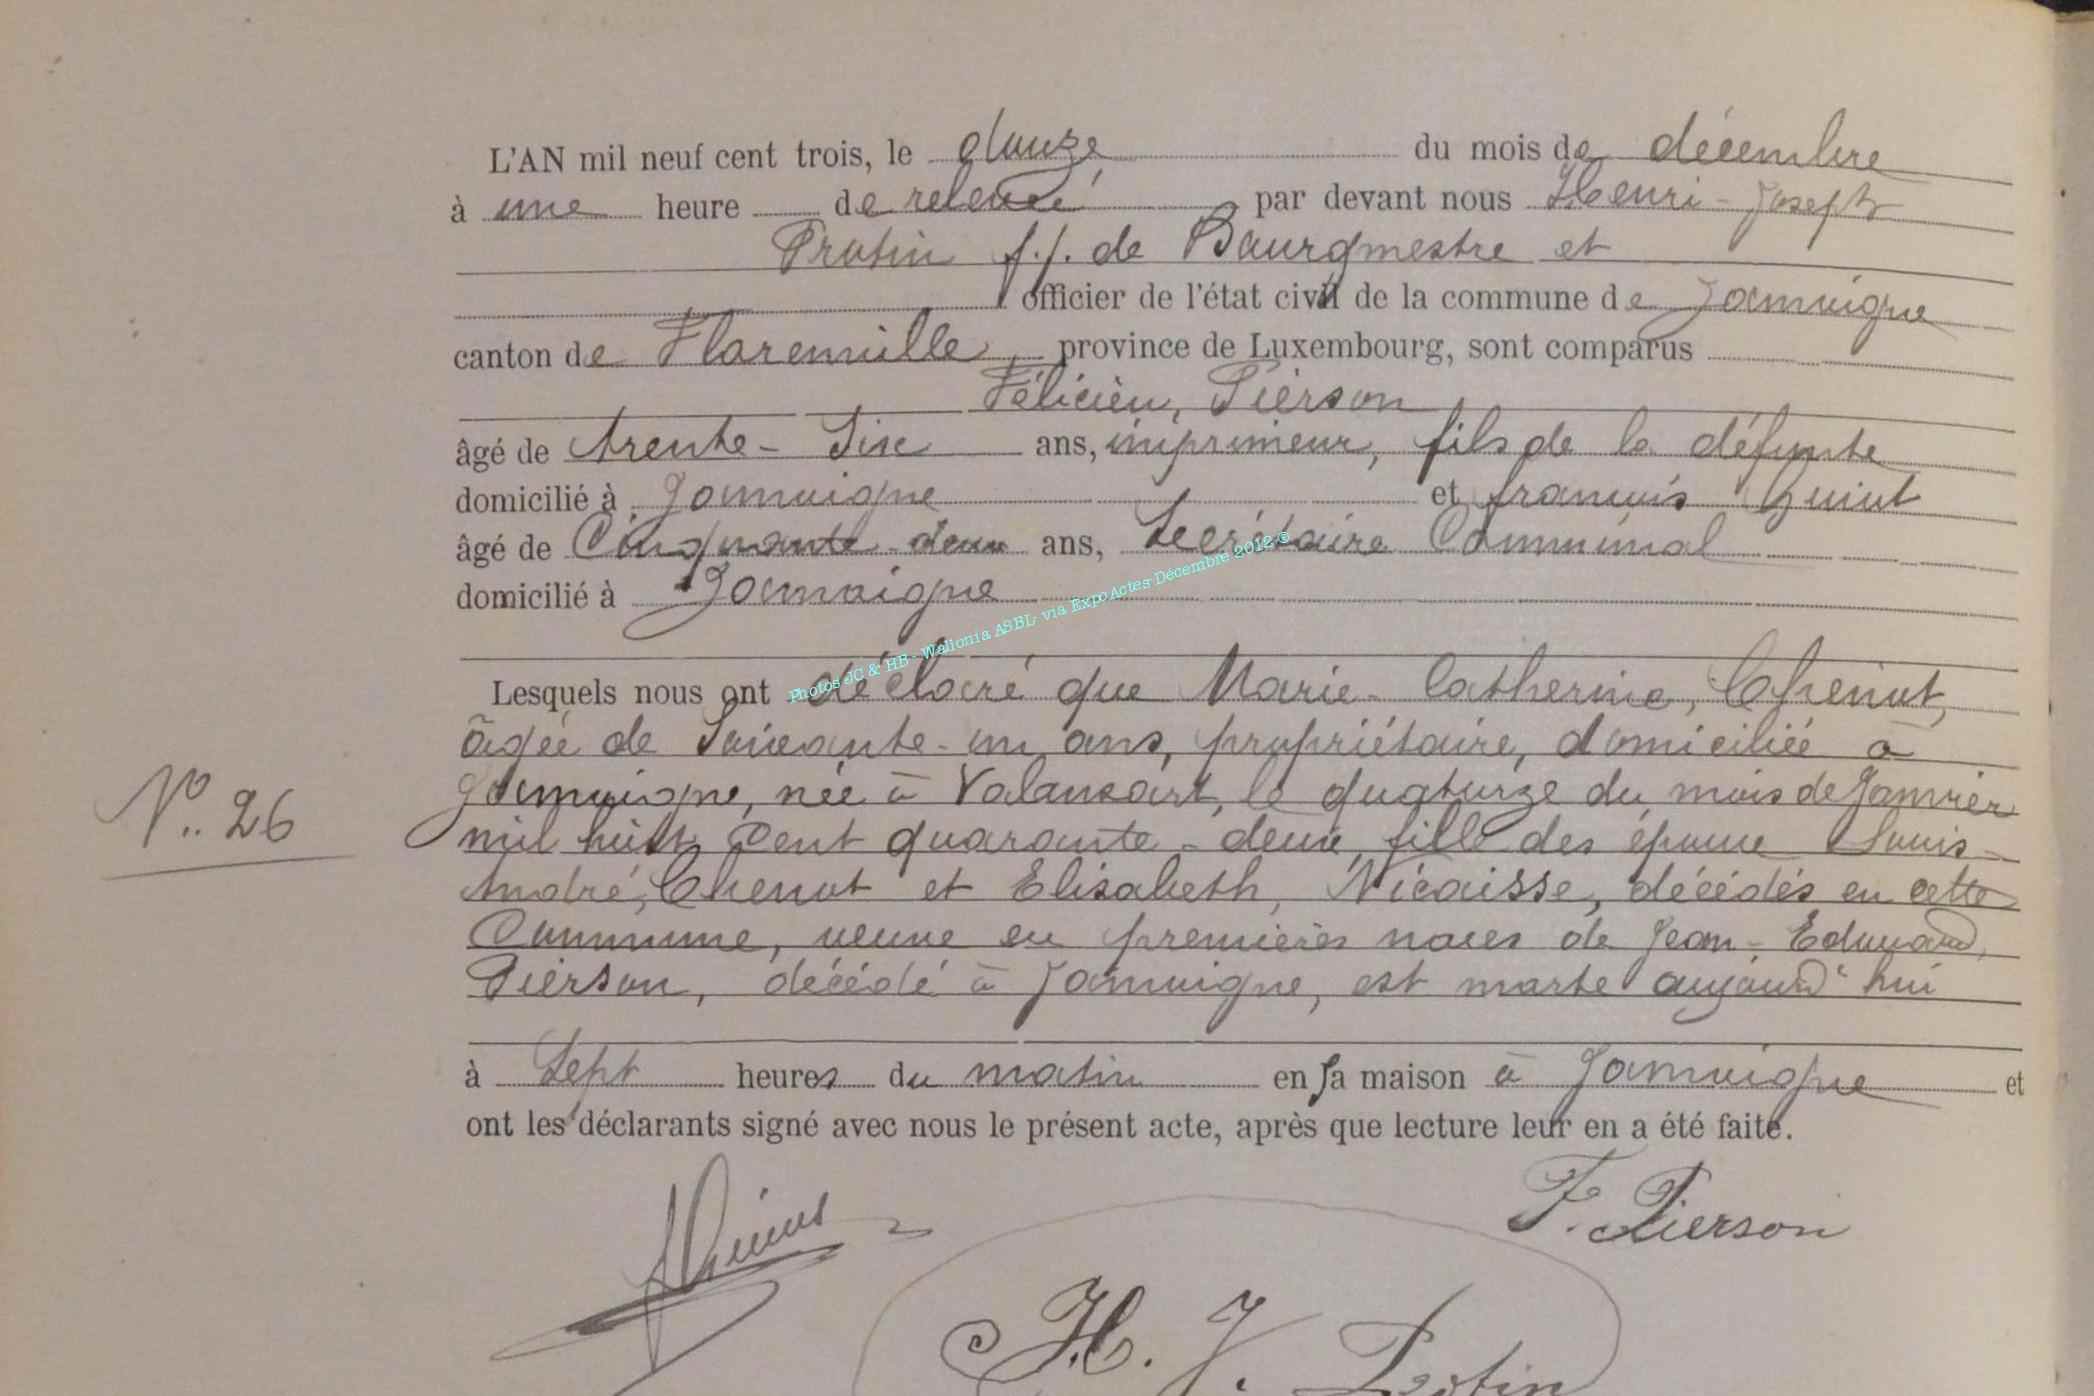 L'AN mil neuf cent trois, le douze du mois de décembre
à une heure de relevé par devant nous Henri-Joseph
Protin f.f. de Bourgmestre et
officier de l'état civil de la commune de Jamoigne
canton de Florenville, province de Luxembourg, sont comparus
Félicien, Pierson
âgé de trente-Six ans, imprimeur, fils de la défunte
domicilié à Jamoigne et françois Guiot
âgé de Cinquante deux ans, Secrétaire Communal
domicilié à Jamoigne
Photos JC & HB - Wallonia ASBL via ExpoActes Décembre 2012 ©
Lesquels nous ont déclaré que Marie-Catherine, Chenot,
âgée de Soixante-un ans, propriétaire, domiciliée à
N° 26
Jamoigne, née à Valansart, le quatorze du mois de Janvier
mil huit Cent quarante-deux, fille des époux Louis-
André, Chenot et Elisabeth, Nicaisse, décédés en cette
Commune, veuve en premières noces de Jean-Edouard,
Pierson, décédé à Jamoigne, est morte aujourd'hui
à Sept heures du matin en sa maison à Jamoigne et
ont les déclarants signé avec nous le présent acte, après que lecture leur en a été faite.
F. Pierson
H. J. Protin